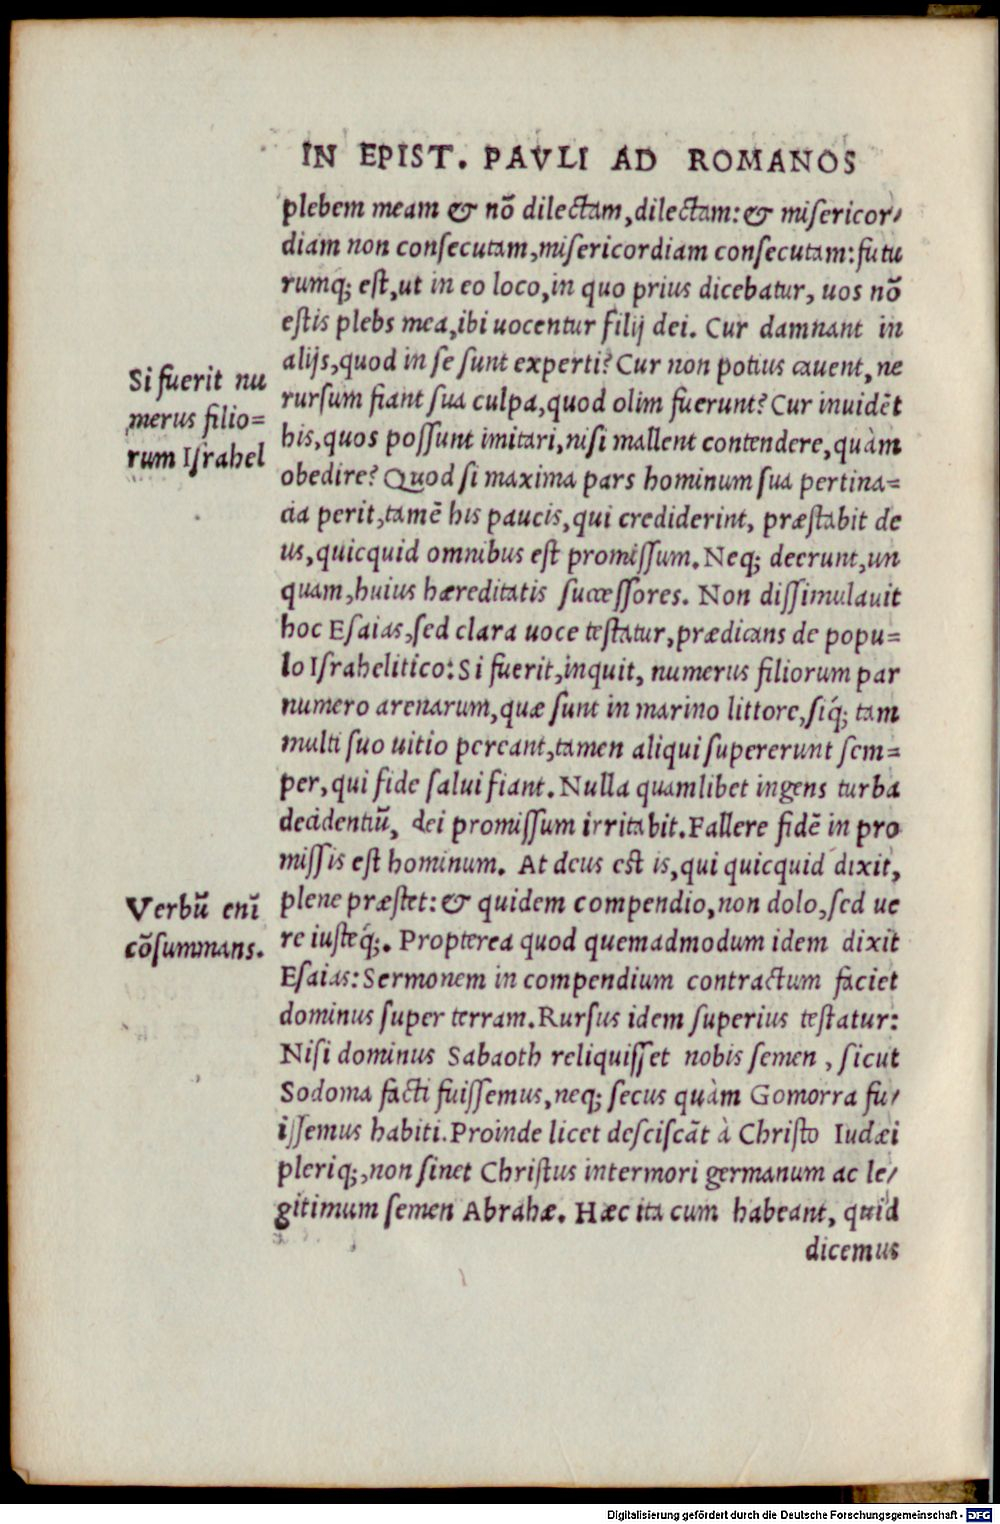 IN EPIST. PAVLI AD ROMANOS
plebem meam & nō dilectam, dilectam: & misericor/
diam non consecutam, misericordiam consecutam: futu
rumq; est, ut in eo loco, in quo prius dicebatur, uos nō
estis plebs mea, ibi uocentur filij dei. Cur damnant in
alijs, quod in se sunt experti? Cur non potius cauent, ne
rursum fiant sua culpa, quod olim fuerunt? Cur inuidēt
his, quos possunt imitari, nisi mallent contendere, quàm
obedire? Quod si maxima pars hominum sua pertina=
cia perit, tamē his paucis, qui crediderint, præstabit de
us, quicquid omnibus est promissum. Neq; deerunt, un
quam, huius hæreditatis successores. Non dissimulauit
hoc Esaias, sed clara uoce testatur, prædicans de popu=
lo Israhelitico: Si fuerit, inquit, numerus filiorum par
numero arenarum, quæ sunt in marino littore, siq́; tam
multi suo uitio pereant, tamen aliqui supererunt sem=
per, qui fide salui fiant. Nulla quamlibet ingens turba
decidentiū, dei promissum irritabit. Fallere fidē in pro
missis est hominum. At deus est is, qui quicquid dixit,
plene præstet: & quidem compendio, non dolo, sed ue
re iusteq́;. Propterea quod quemadmodum idem dixit
Esaias: Sermonem in compendium contractum faciet
dominus super terram. Rursus idem superius testatur:
Nisi dominus Sabaoth reliquisset nobis semen, sicut
Sodoma facti fuissemus, neq; secus quàm Gomorra fu/
issemus habiti. Proinde licet desciscāt à Christo Iudæi
pleriq;, non sinet Christus intermori germanum ac le/
gitimum semen Abrahæ. Hæc ita cum habeant, quid
dicemus
Si fuerit nu
merus filio=
rum Israhel
Verbū enī
cōsummans.
Digitalisierung gefördert durch die Deutsche Forschungsgemeinschaft - DFG